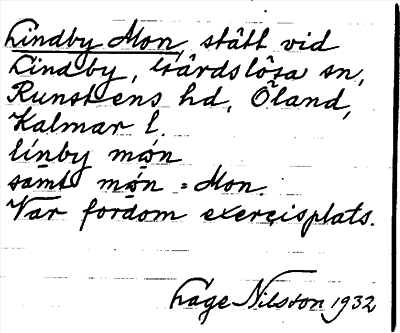 Lindby Mon, slätt vid
Lindby, Gärdslösa sn,
Runstens hd, Öland,
Kalmar l.
línby mǫ́n
samt mǫ́n = Mon.
Var fordom exercisplats.
Låge Nilsson 1932